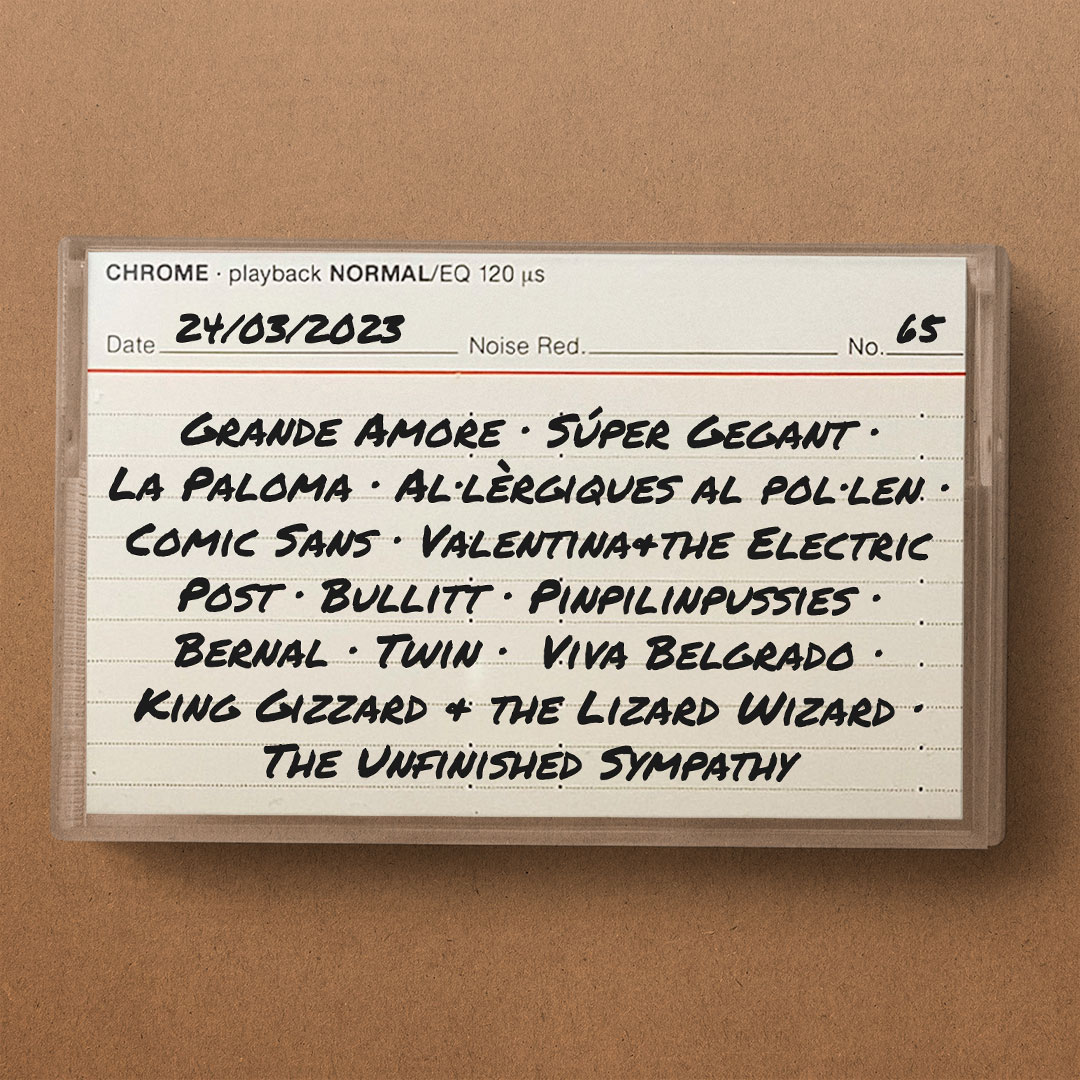 CHROME · playback NORMAL/EQ 120 µs
Date 24/03/2023 Noise Red. No. 65
GRANDE AMORE · SÚPER GEGANT ·
LA PALOMA · AL·LÈRGIQUES AL POL·LEN ·
COMIC SANS · VALENTINA&THE ELECTRIC
POST · BULLITT · PINPILINPUSSIES ·
BERNAL · TWIN · VIVA BELGRADO ·
KING GIZZARD & THE LIZARD WIZARD ·
THE UNFINISHED SYMPATHY